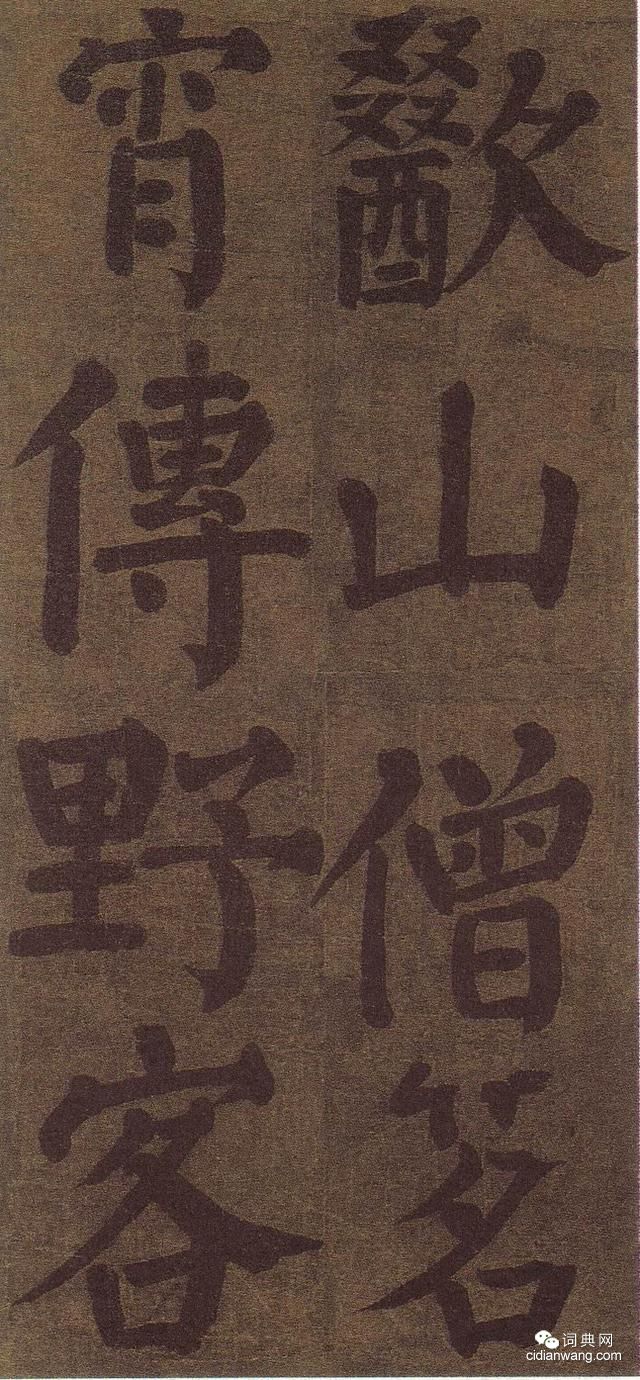 歠山僧茗
宵傳野客
词典网
cidianwang.com